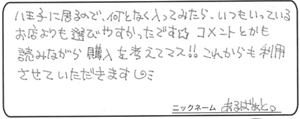 八王子に居るので、何となく入ってみたら、いつもいっている
お店よりも選びやすかったです♪ コメントとかも
読みながら購入を考えてマス!! これからも利用
させていただきます
ニックネーム あるばあと。